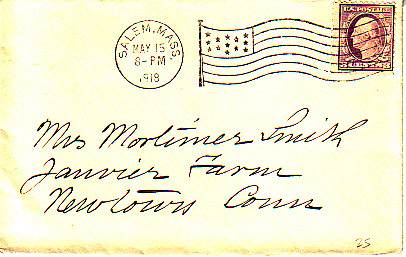 SALEM, MASS.
MAY 15
8-PM
1918
U.S. POSTAGE
Mrs Mortimer Smith
Janvier Farm
Newtown Conn
25